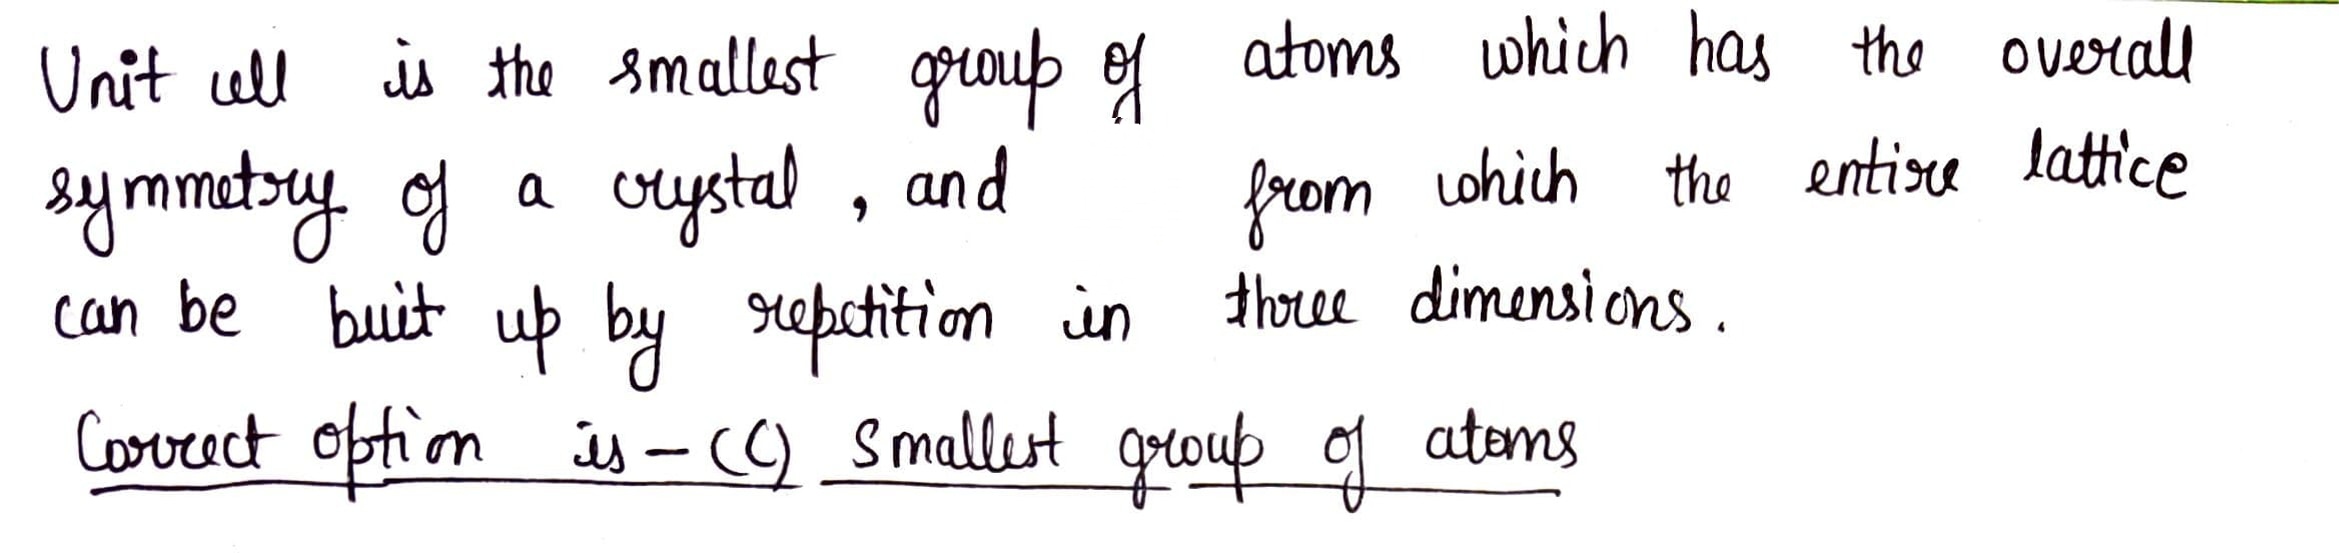 Unit cell is the smallest group of atoms which has the overall
symmetry of a crystal, and from which the entire lattice
can be buit up by repetition in three dimensions.
Correct option is - (C) smallest group of atoms